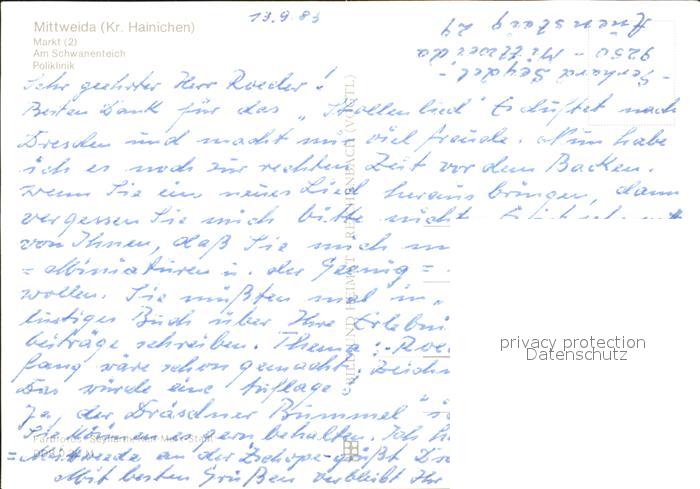 Mittweida (Kr. Hainichen)
Markt (2)
Am Schwanenteich
Poliklinik
13.9.83
- Gerhard Seydel -
9250 - Mittweida
29
Sehr geehrter Herr Roeder!
Besten Dank für das „Stollenlied“ Es duftet nach
Dresden und macht mir viel Freude. Nun habe
ich es noch zur rechten Zeit vor dem Backen.
Wenn Sie ein neues Lied heraus bringen, dann
vergessen Sie mich bitte nicht.
von Ihnen, daß Sie mich
= Miniaturen u. der =
wollen. Sie müßten mal
lustiges Buch über Ihre
beiträge schreiben. Thema:
fang wäre schon gemacht.
Das würde eine Auflage
Ja, der Dräsdner Bummel
Sie können gern behalten. Ich
= Mittweida an der Zschopau grüßt
Mit besten Grüßen verbleibt Ihr
BILD UND HEIMAT REICHENBACH (VOGTL)
privacy protection
Datenschutz